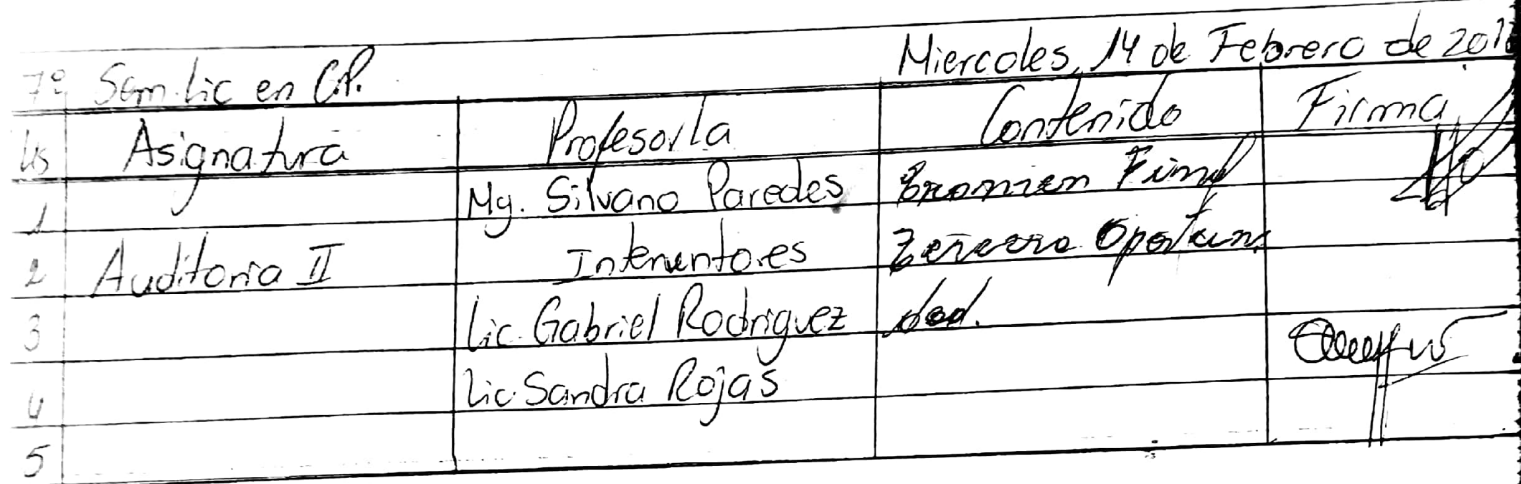 7º Sem. Lic en C.P. Miercoles, 14 de Febrero de
Hs Asignatura Profesor/a Contenido Firma
1 Mg. Silvano Paredes Examen Final
2 Auditoria II Interventores Tercera Oportuni
3 Lic. Gabriel Rodriguez dad.
4 Lic. Sandra Rojas
5